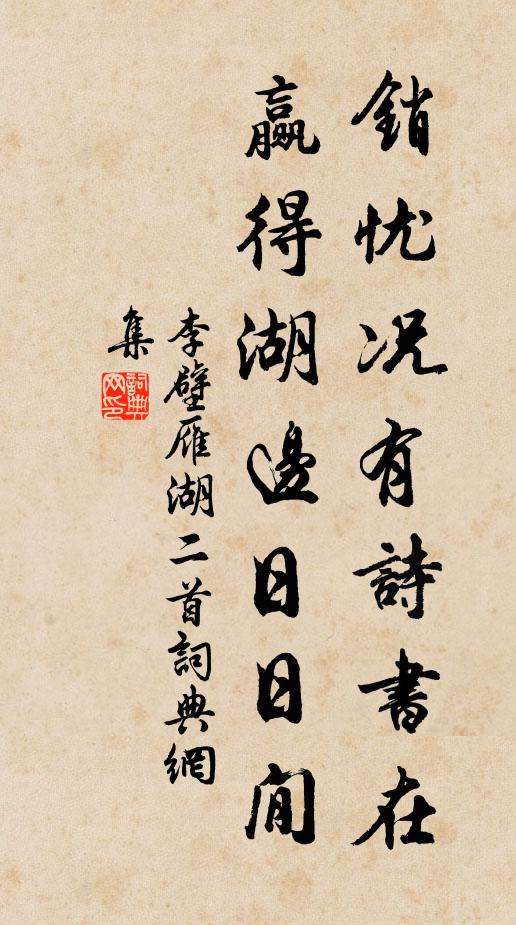 銷忧况有詩書在
贏得湖邊日日閒
李壁雁湖二首詞典網
集
詞典網印